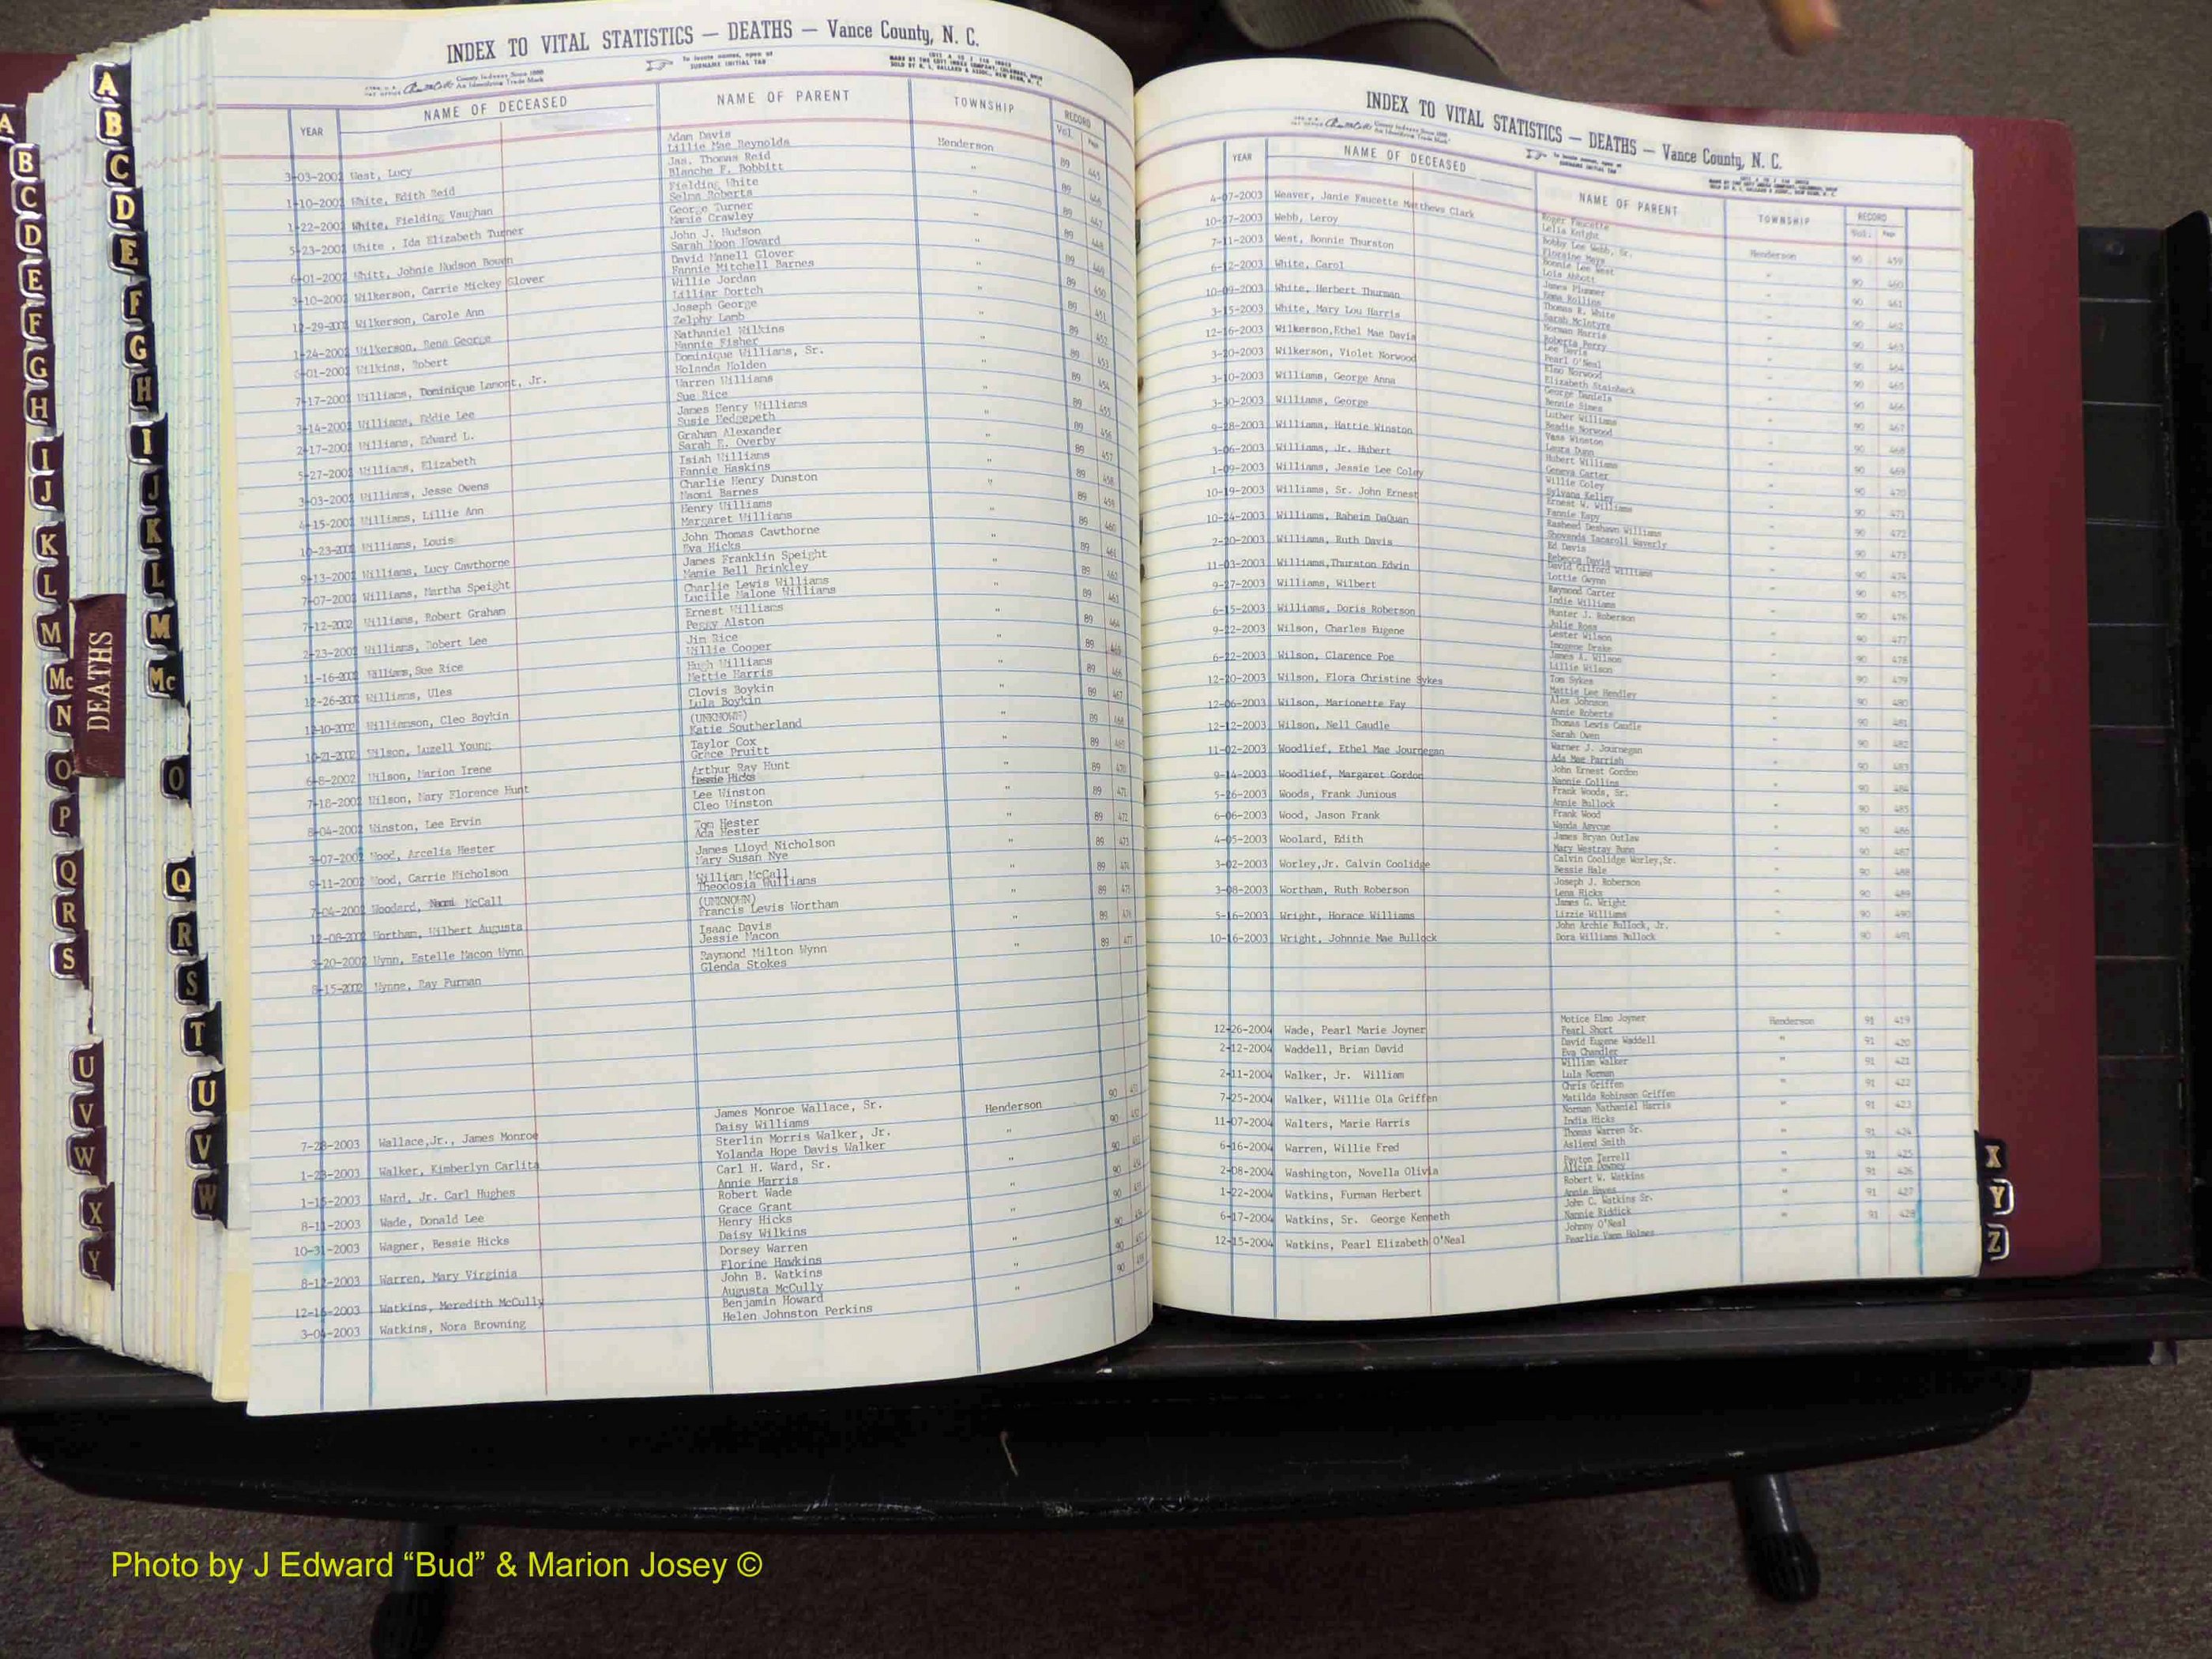 INDEX TO VITAL STATISTICS — DEATHS — Vance County, N. C.
County Indexes Since 1888
An Identifying Trade Mark
To locate names, open at
SURNAME INITIAL TAB
YEAR NAME OF DECEASED NAME OF PARENT TOWNSHIP RECORD
Vol. Page
Adam Davis
3-03-2002 West, Lucy Lillie Mae Reynolds Henderson 89 445
Jas. Thomas Reid
1-10-2002 White, Edith Reid Blanche F. Bobbitt " 89 446
Fielding White
1-22-2002 White, Fielding Vaughan Selma Roberts " 89 447
George Turner
5-23-2002 White , Ida Elizabeth Turner Mamie Crawley " 89 448
John J. Hudson
6-01-2002 Whitt, Johnie Hudson Bowen Sarah Moon Howard " 89 449
David Manell Glover
3-10-2002 Wilkerson, Carrie Mickey Glover Fannie Mitchell Barnes " 89 450
Willie Jordan
12-29-2002 Wilkerson, Carole Ann Lilliar Dortch " 89 451
Joseph George
1-24-2002 Wilkerson, Rena George Zelphy Lamb " 89 452
Nathaniel Wilkins
-01-2002 Wilkins, Robert Nannie Fisher " 89 453
Dominique Williams, Sr.
7-17-2002 Williams, Dominique Lamont, Jr. Holanda Holden " 89 454
Warren Williams
3-14-2002 Williams, Eddie Lee Sue Rice " 89 455
James Henry Williams
2-17-2002 Williams, Edward L. Susie Hedgepeth " 89 456
Graham Alexander
5-27-2002 Williams, Elizabeth Sarah E. Overby " 89 457
Isiah Williams
3-03-2002 Williams, Jesse Owens Fannie Haskins " 89 458
Charlie Henry Dunston
4-15-2002 Williams, Lillie Ann Naomi Barnes " 89 459
Henry Williams
10-23-2002 Williams, Louis Margaret Williams " 89 460
John Thomas Cawthorne
9-13-2002 Williams, Lucy Cawthorne Eva Hicks " 89 461
James Franklin Speight
7-07-2002 Williams, Martha Speight Mamie Bell Brinkley " 89 462
Charlie Lewis Williams
7-12-2002 Williams, Robert Graham Lucille Malone Williams " 89 463
Ernest Williams
2-23-2002 Williams, Robert Lee Peggy Alston " 89 464
Jim Rice
11-16-2002 Williams, Sue Rice Willie Cooper " 89 465
Hugh Williams
12-26-2002 Williams, Ules Mettie Harris " 89 466
Clovis Boykin
12-10-2002 Williamson, Cleo Boykin Lula Boykin " 89 467
(UNKNOWN)
10-21-2002 Wilson, Luzell Young Katie Southerland " 89 468
Taylor Cox
6-8-2002 Wilson, Marion Irene Grace Pruitt " 89 469
Arthur Ray Hunt
7-18-2002 Wilson, Mary Florence Hunt Hicks " 89 470
Lee Winston
8-04-2002 Winston, Lee Ervin Cleo Winston " 89 471
Tom Hester
3-07-2002 Wood, Arcelia Hester Ada Hester " 89 472
James Lloyd Nicholson
9-11-2002 Wood, Carrie Nicholson Mary Susan Nye " 89 473
William McCall
7-04-2002 Woodard, Naomi McCall Theodosia Williams " 89 474
(UNKNOWN)
12-08-2002 Wortham, Wilbert Augusta Francis Lewis Wortham " 89 475
Isaac Davis
3-20-2002 Wynn, Estelle Macon Wynn Jessie Macon " 89 476
Raymond Milton Wynn
8-15-2002 Wynne, Ray Furman Glenda Stokes " 89 477
James Monroe Wallace, Sr.
7-28-2003 Wallace,Jr., James Monroe Daisy Williams Henderson 90 451
Sterlin Morris Walker, Jr.
1-23-2003 Walker, Kimberlyn Carlita Yolanda Hope Davis Walker " 90 452
Carl H. Ward, Sr.
1-15-2003 Ward, Jr. Carl Hughes Annie Harris " 90 453
Robert Wade
8-11-2003 Wade, Donald Lee Grace Grant " 90 454
Henry Hicks
10-31-2003 Wagner, Bessie Hicks Daisy Wilkins " 90 455
Dorsey Warren
8-12-2003 Warren, Mary Virginia Florine Hawkins " 90 456
John B. Watkins
12-16-2003 Watkins, Meredith McCully Augusta McCully " 90 457
Benjamin Howard
3-04-2003 Watkins, Nora Browning Helen Johnston Perkins " 90 458
INDEX TO VITAL STATISTICS — DEATHS — Vance County, N. C.
YEAR NAME OF DECEASED NAME OF PARENT TOWNSHIP RECORD
Vol. Page
Roger Faucette
4-07-2003 Weaver, Janie Faucette Matthews Clark Lelia Knight Henderson 90 459
Bobby Lee Webb, Sr.
10-27-2003 Webb, Leroy Floraine Mays " 90 460
Bonnie Lee West
7-11-2003 West, Bonnie Thurston Lois Abbott " 90 461
James Plummer
6-12-2003 White, Carol Edna Rollins " 90 462
Thomas R. White
10-09-2003 White, Herbert Thurman Sarah McIntyre " 90 463
Norman Harris
3-15-2003 White, Mary Lou Harris Roberta Perry " 90 464
Lee Davis
12-16-2003 Wilkerson,Ethel Mae Davis Pearl O'Neal " 90 465
Elmo Norwood
3-20-2003 Wilkerson, Violet Norwood Elizabeth Stainback " 90 466
George Daniels
3-10-2003 Williams, George Anna Bennie Simes " 90 467
Luther Williams
3-30-2003 Williams, George Beadie Norwood " 90 468
Vass Winston
9-28-2003 Williams, Hattie Winston Laura Dunn " 90 469
Hubert Williams
3-06-2003 Williams, Jr. Hubert Geneva Carter " 90 470
Willie Coley
1-09-2003 Williams, Jessie Lee Coley Sylvana Kelley " 90 471
Ernest W. Williams
10-19-2003 Williams, Sr. John Ernest Fannie Espy " 90 472
Rasheed Deshawn Williams
10-24-2003 Williams, Raheim DaQuan Shovanda Tacaroll Waverly " 90 473
Ed Davis
2-20-2003 Williams, Ruth Davis Rebecca Davis " 90 474
David Gilford Williams
11-03-2003 Williams,Thurston Edwin Lottie Gwynn " 90 475
Raymond Carter
9-27-2003 Williams, Wilbert Indie Williams " 90 476
Hunter J. Roberson
6-15-2003 Williams, Doris Roberson Julie Ross " 90 477
Lester Wilson
9-22-2003 Wilson, Charles Eugene Imogene Drake " 90 478
James A. Wilson
6-22-2003 Wilson, Clarence Poe Lillie Wilson " 90 479
Tom Sykes
12-20-2003 Wilson, Flora Christine Sykes Mattie Lee Hendley " 90 480
Alex Johnson
12-06-2003 Wilson, Marionette Fay Annie Roberts " 90 481
Thomas Lewis Caudle
12-12-2003 Wilson, Nell Caudle Sarah Owen " 90 482
Warner J. Journegan
11-02-2003 Woodlief, Ethel Mae Journegan Ada Mae Parrish " 90 483
John Ernest Gordon
9-14-2003 Woodlief, Margaret Gordon Nannie Collins " 90 484
Frank Woods, Sr.
5-26-2003 Woods, Frank Junious Annie Bullock " 90 485
Frank Wood
6-06-2003 Wood, Jason Frank Wanda Ayscue " 90 486
James Bryan Outlaw
4-05-2003 Woolard, Edith Mary Westray Bunn " 90 487
Calvin Coolidge Worley,Sr.
3-02-2003 Worley,Jr. Calvin Coolidge Bessie Hale " 90 488
Joseph J. Roberson
3-08-2003 Wortham, Ruth Roberson Lena Hicks " 90 489
James G. Wright
5-16-2003 Wright, Horace Williams Lizzie Williams " 90 490
John Archie Bullock, Jr.
10-16-2003 Wright, Johnnie Mae Bullock Dora Williams Bullock " 90 491
Motice Elmo Joyner
12-26-2004 Wade, Pearl Marie Joyner Pearl Short Henderson 91 419
David Eugene Waddell
2-12-2004 Waddell, Brian David Eva Chandler " 91 420
William Walker
2-11-2004 Walker, Jr. William Lula Norman " 91 421
Chris Griffen
7-25-2004 Walker, Willie Ola Griffen Matilda Robinson Griffen " 91 422
Norman Nathaniel Harris
11-07-2004 Walters, Marie Harris India Hicks " 91 423
Thomas Warren Sr.
6-16-2004 Warren, Willie Fred Asliend Smith " 91 424
Payton Terrell
2-08-2004 Washington, Novella Olivia Alicia Downey " 91 425
Robert W. Watkins
1-22-2004 Watkins, Furman Herbert Annie Hayes " 91 426
John C. Watkins Sr.
6-17-2004 Watkins, Sr. George Kenneth Nannie Riddick " 91 427
Johnny O'Neal
12-15-2004 Watkins, Pearl Elizabeth O'Neal Pearlie Vann Holmes " 91 428
A
B
C
D
E
F
G
H
I
J
K
L
M
Mc
N
O
P
Q
R
S
U
V
W
X
Y
DEATHS
A
B
C
D
E
F
G
H
I
J
K
L
M
Mc
O
Q
R
S
T
U
V
W
X
Y
Z
Photo by J Edward “Bud” & Marion Josey ©